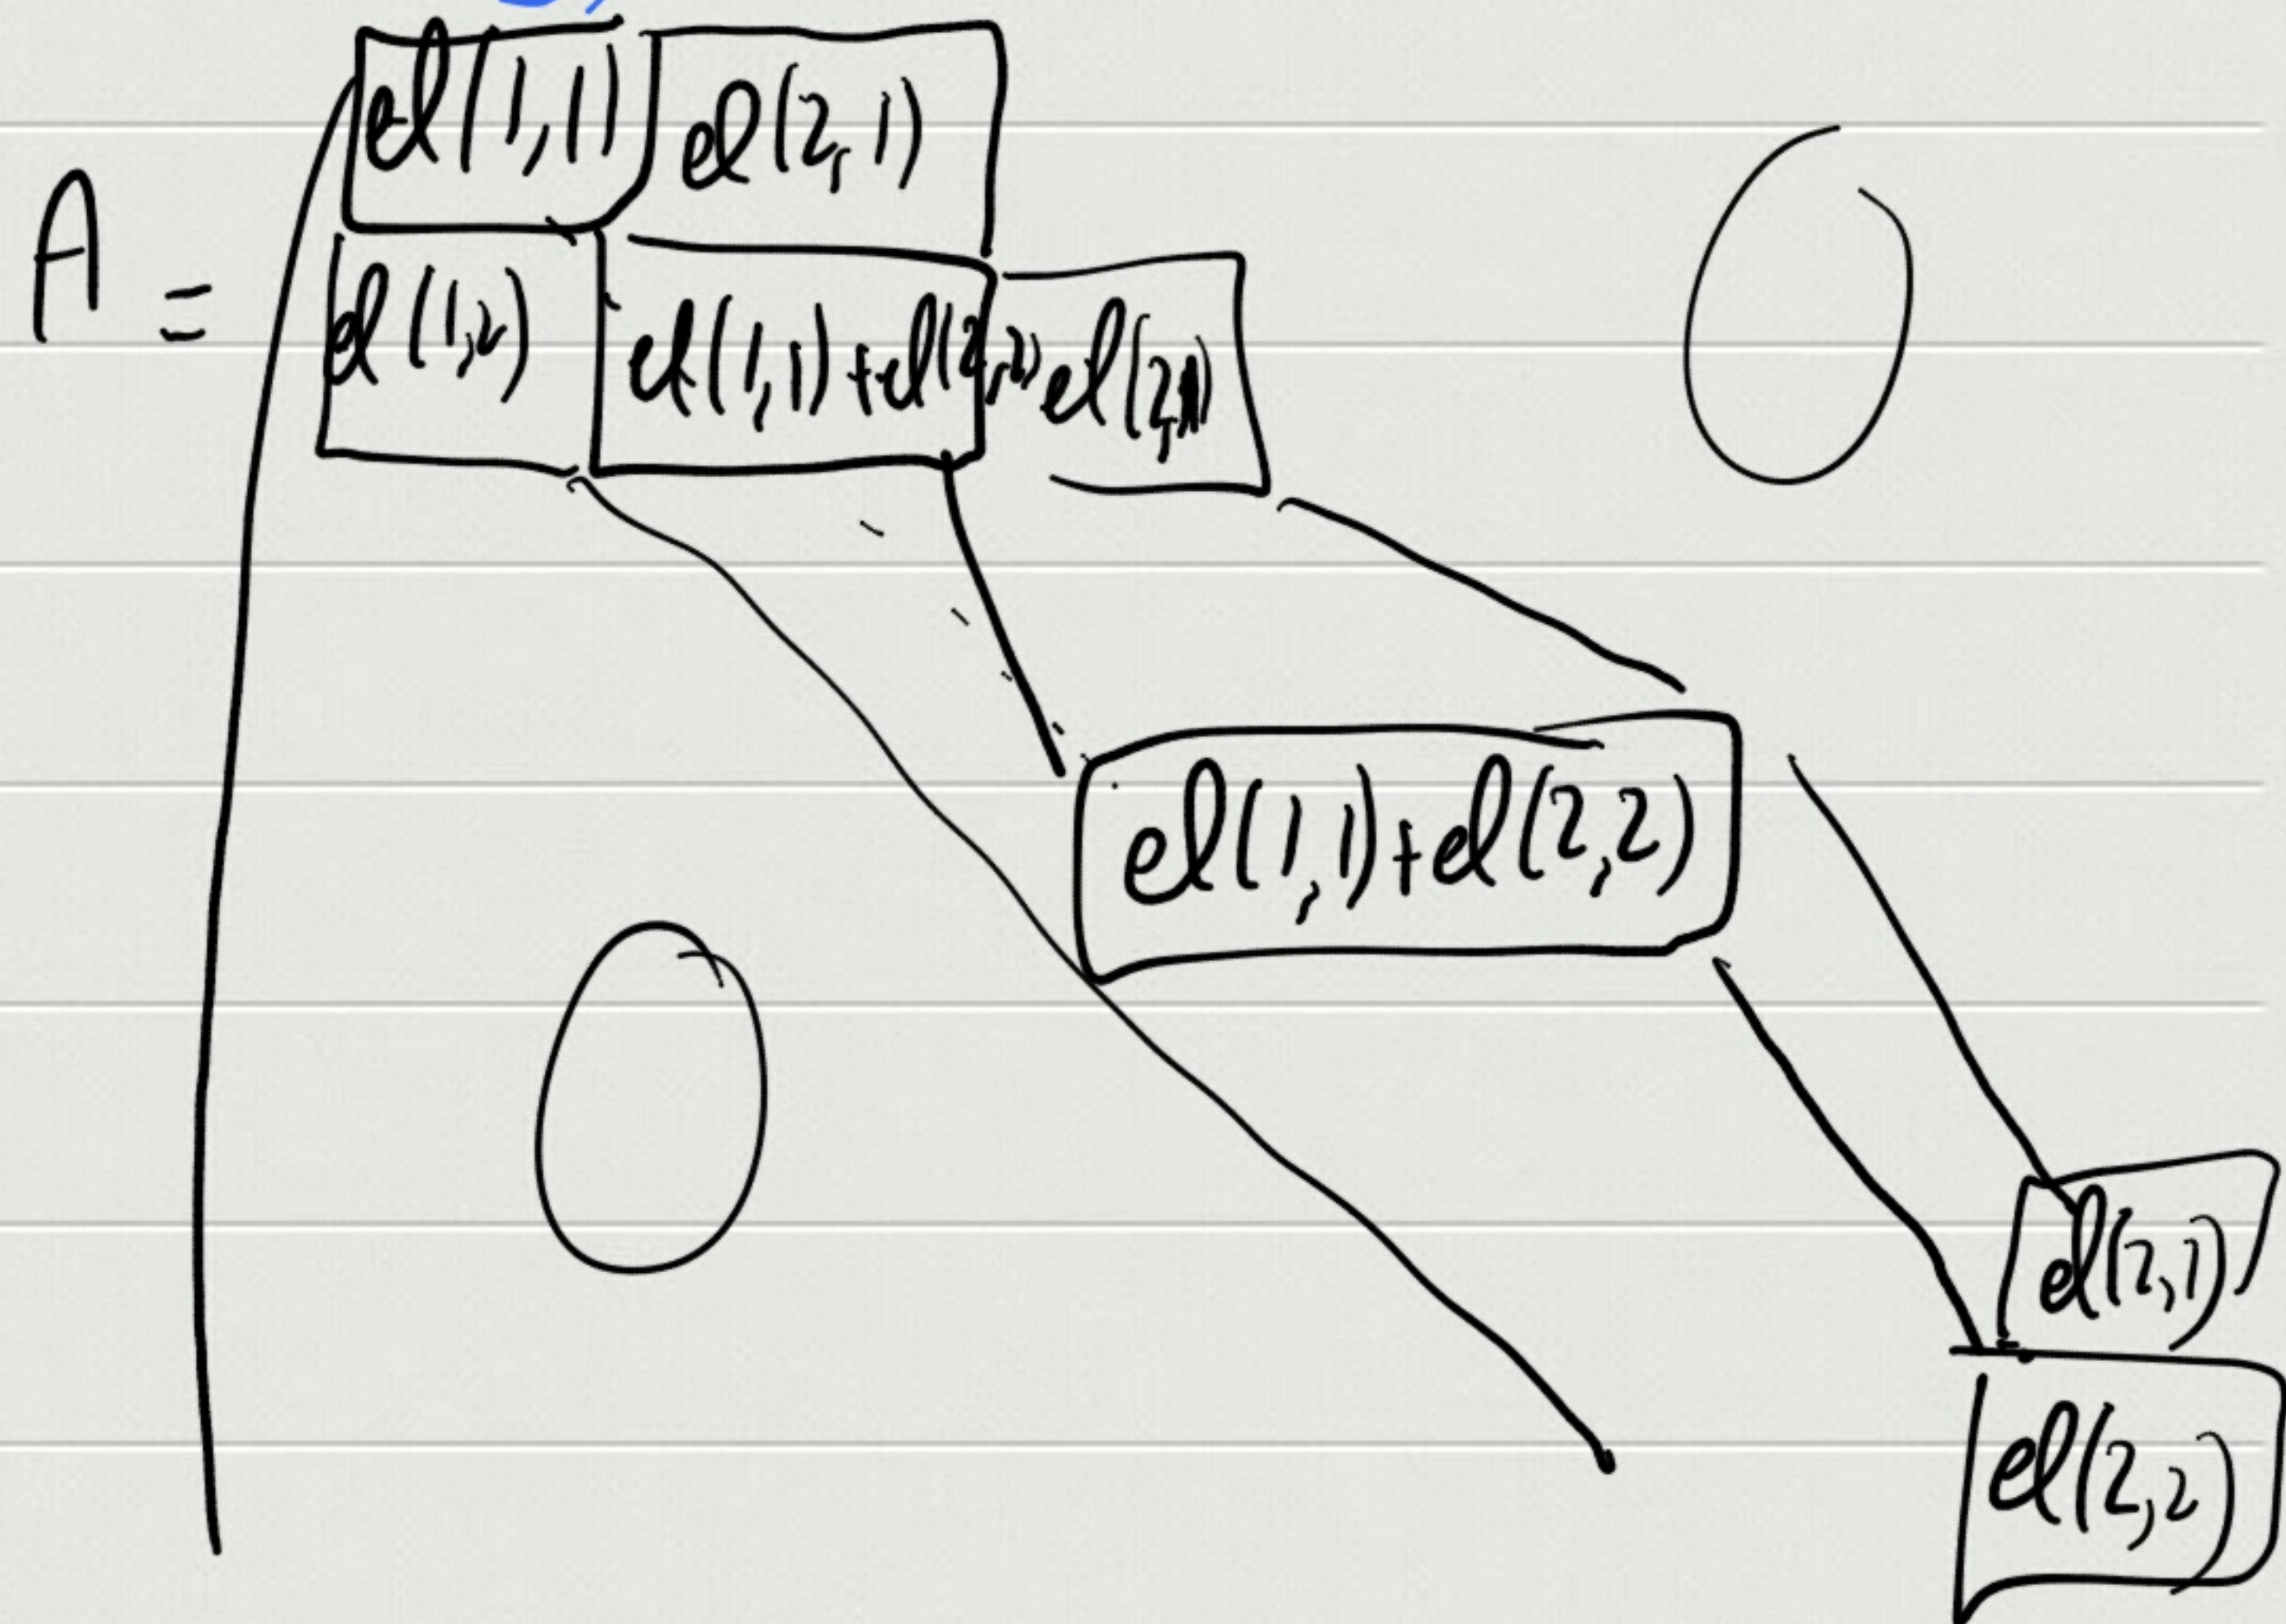 el(1,1) el(2,1)
A =
el(1,2) el(1,1)+el(2,2) el(2,1)
0
el(1,1)+el(2,2)
0
el(2,1)
el(2,2)